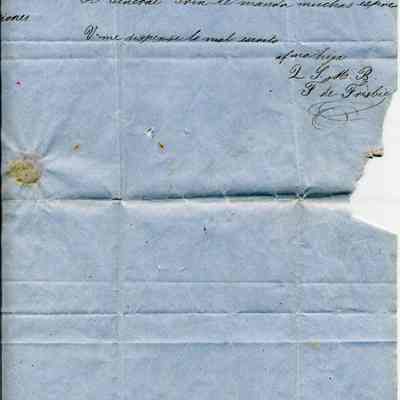 General  le manda muchas espre
ciones
V. me dispense lo mal escrito
afma hija
Q. S. M. B.
F de Frisbie